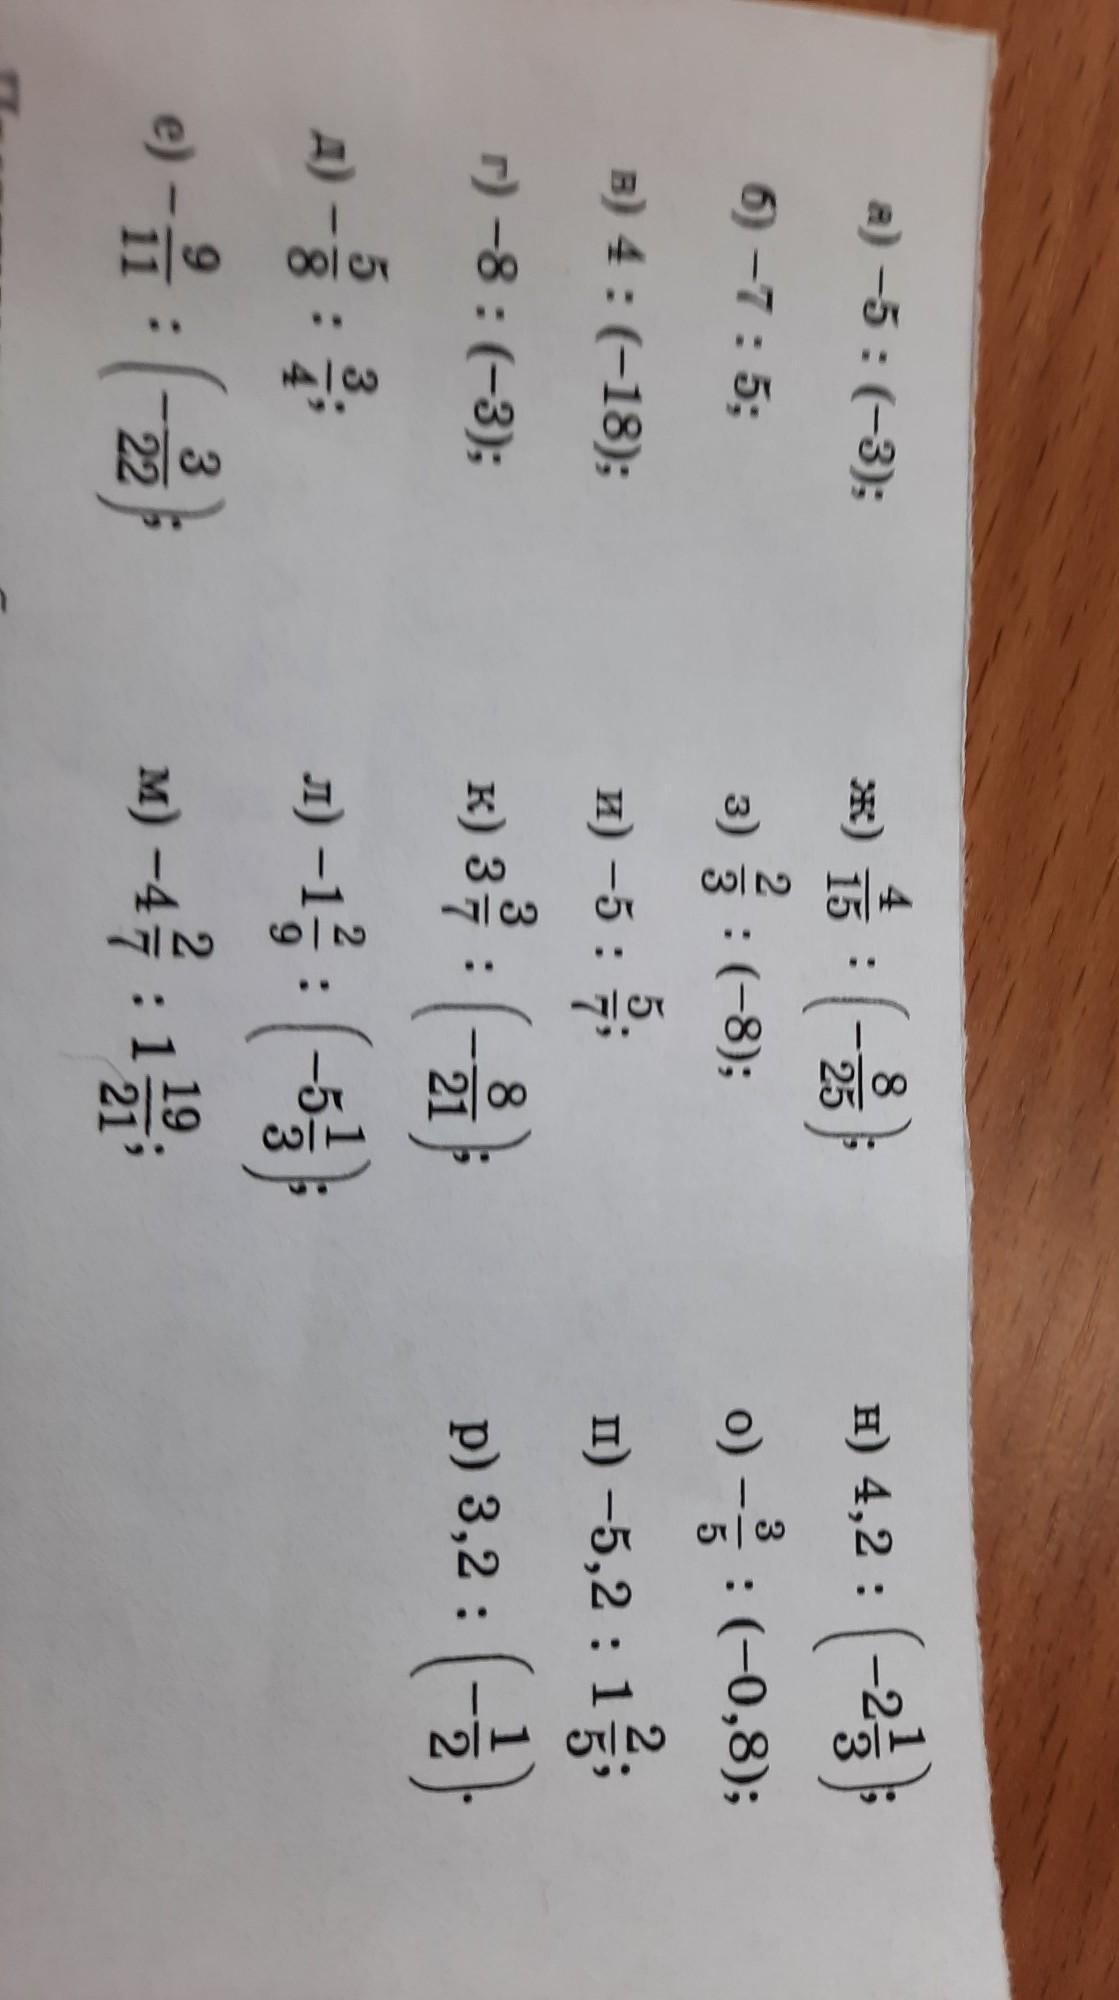 а) −5 : (−3);
б) −7 : 5;
в) 4 : (−18);
г) −8 : (−3);
д) −5/8 : 3/4;
е) −9/11 : (−3/22);
ж) 4/15 : (−8/25);
з) 2/3 : (−8);
и) −5 : 5/7;
к) 3 3/7 : (−8/21);
л) −1 2/9 : (−5 1/3);
м) −4 2/7 : 1 19/21;
н) 4,2 : (−2 1/3);
о) −3/5 : (−0,8);
п) −5,2 : 1 2/5;
р) 3,2 : (−1/2).